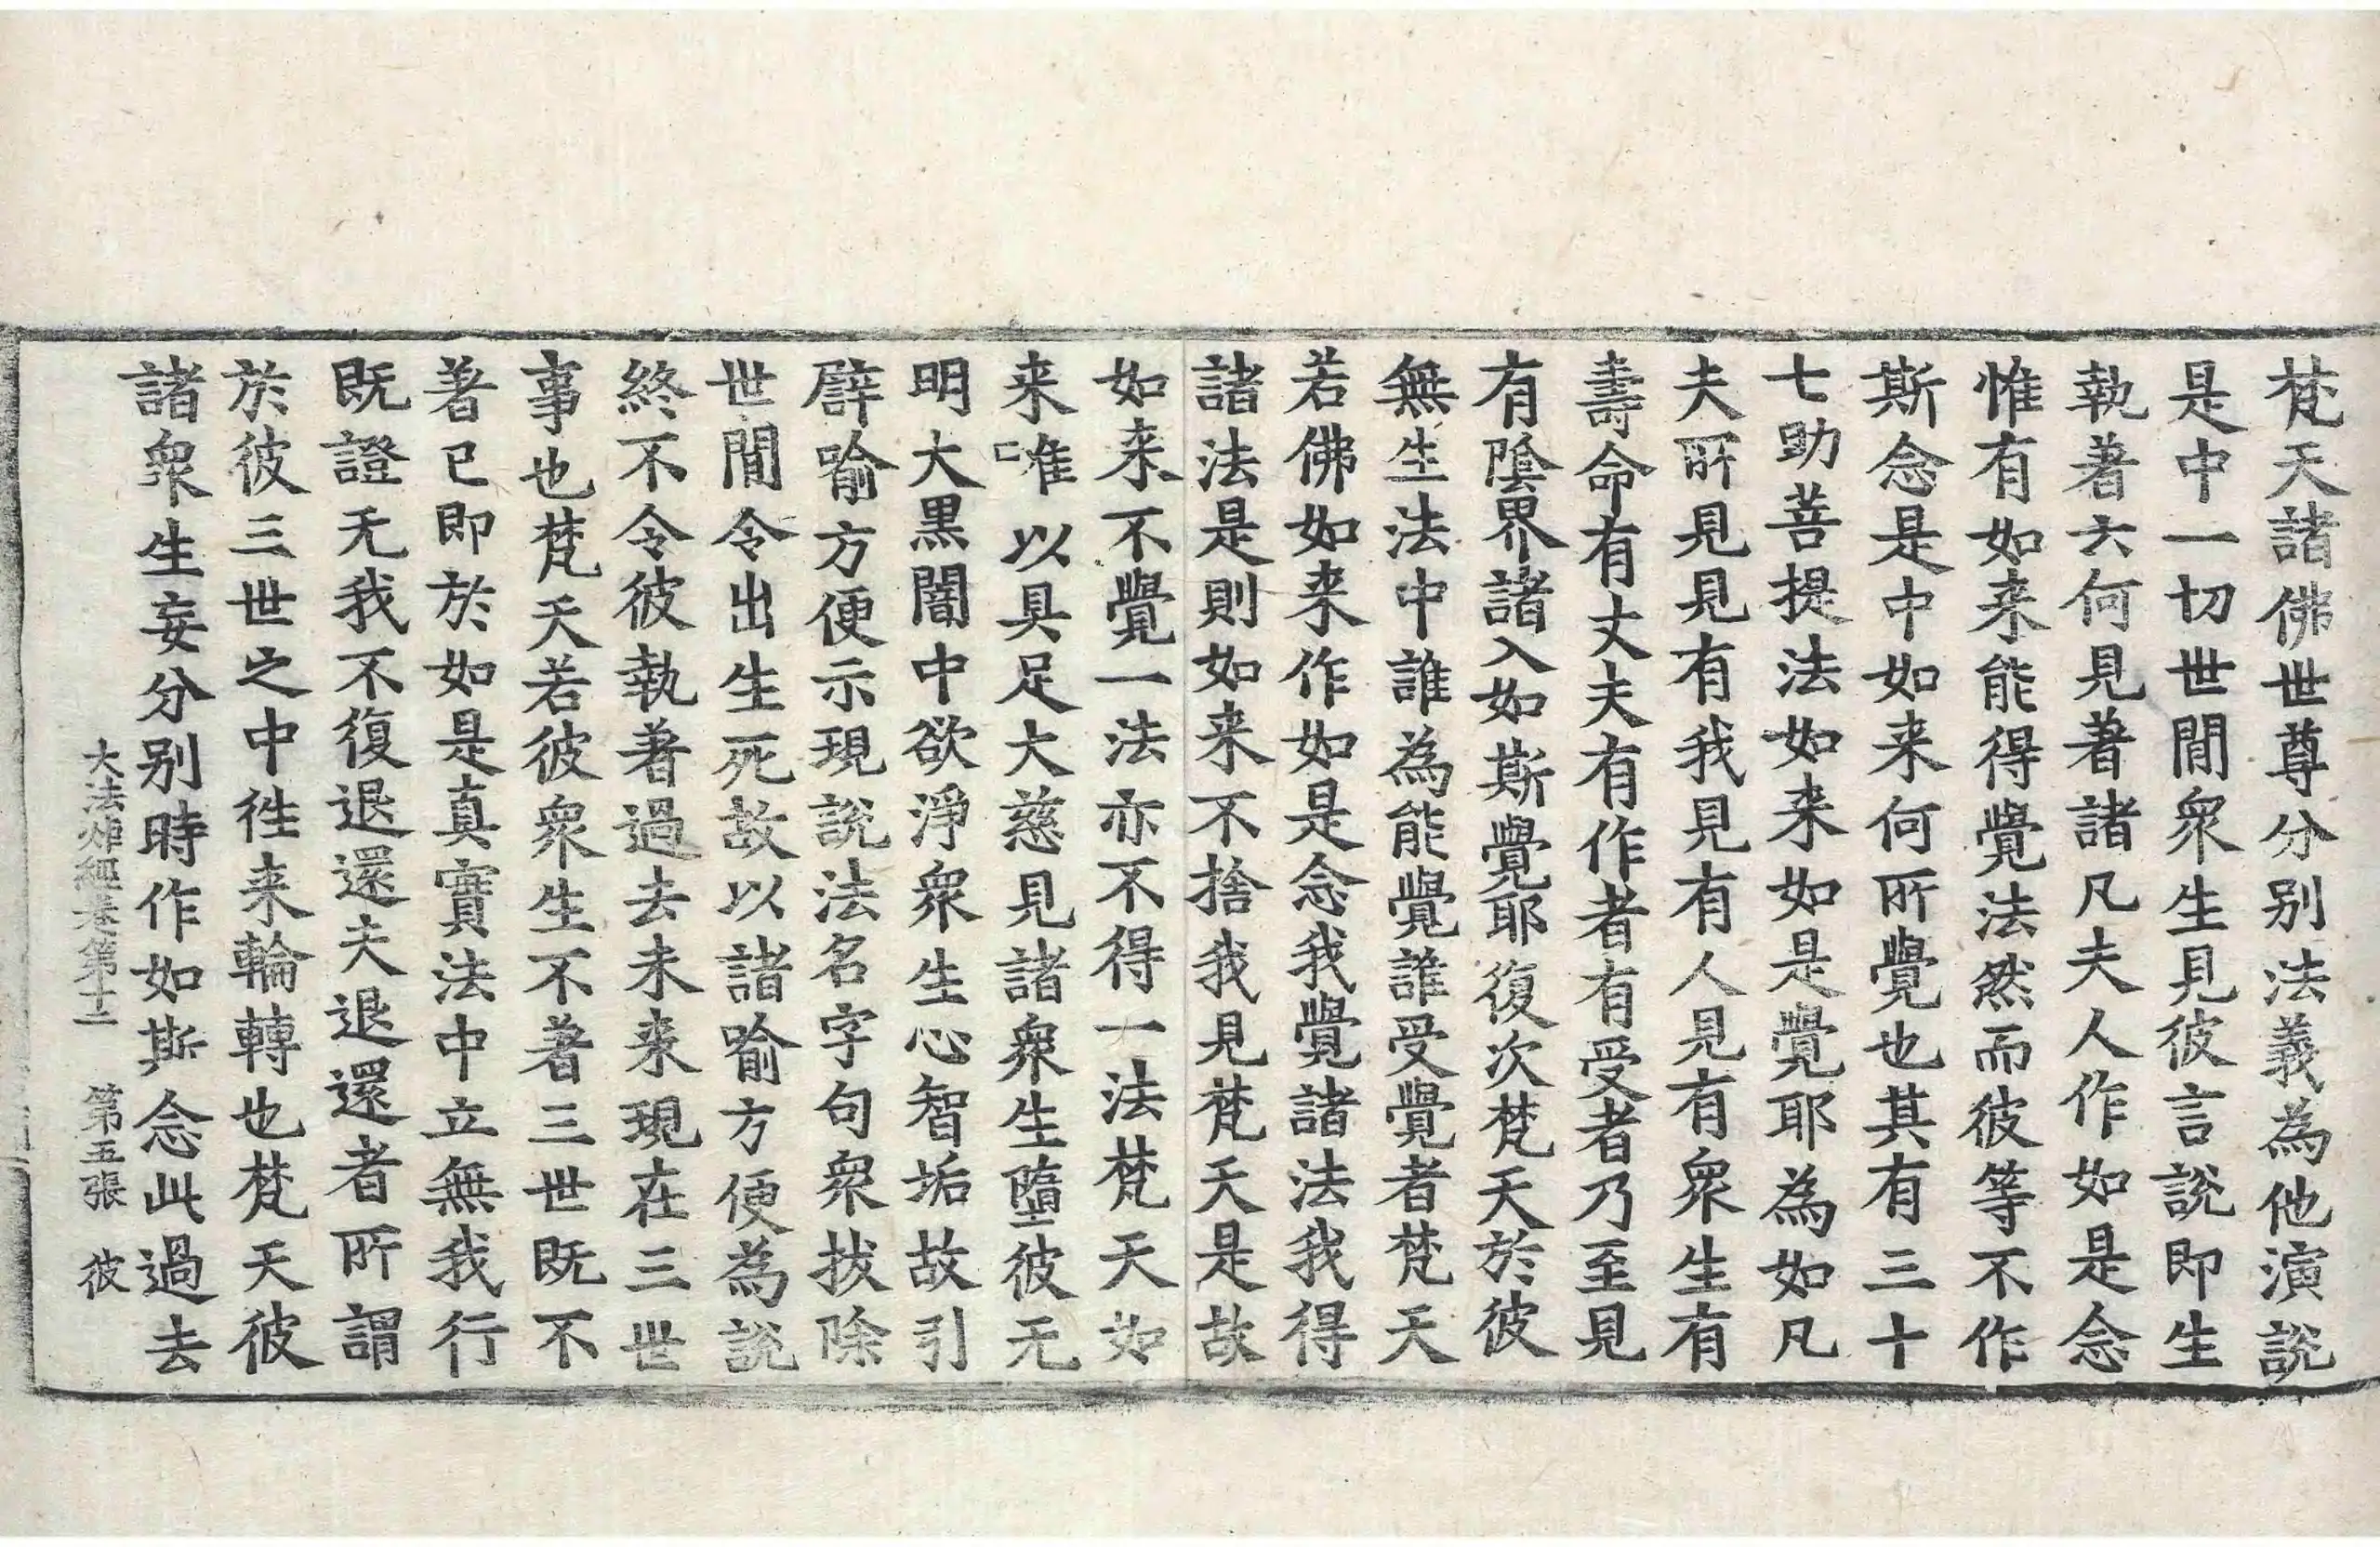 梵天諸佛世尊分别法義為他演說
是中一切世閒衆生見彼言說即生
執著云何見著諸凡夫人作如是念
惟有如来能得覺法然而彼等不作
斯念是中如来何所覺也其有三十
七助菩提法如来如是覺耶為如凡
夫所見見有我見有人見有衆生有
壽命有丈夫有作者有受者乃至見
有陰界諸入如斯覺耶復次梵天於彼
無生法中誰為能覺誰受覺者梵天
若佛如来作如是念我覺諸法我得
諸法是則如来不捨我見梵天是故
如来不覺一法亦不得一法梵天如
来唯以具足大慈見諸衆生墮彼无
明大黒闇中欲淨衆生心智垢故引
譬喻方便示現說法名字句衆拔除
世閒令出生死故以諸喻方便為說
終不令彼執著過去未来現在三世
事也梵天若彼衆生不著三世既不
著已即於如是真實法中立無我行
既證无我不復退還夫退還者所謂
於彼三世之中往来輪轉也梵天彼
諸衆生妄分别時作如斯念此過去
大法炬經卷第十二 第五張 彼